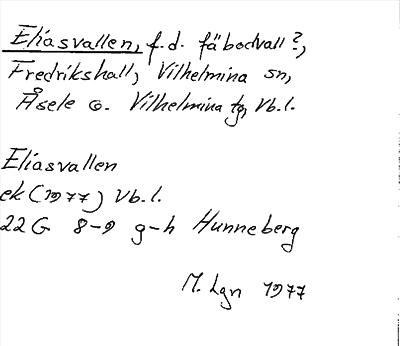 Eliasvallen, f.d. fäbodvall?,
Fredrikshall, Vilhelmina sn,
Åsele o. Vilhelmina tg, Vb.l.
Eliasvallen
ek (1977) Vb.l.
22G 8-9 g-h Hunneberg
M. Lgn 1977